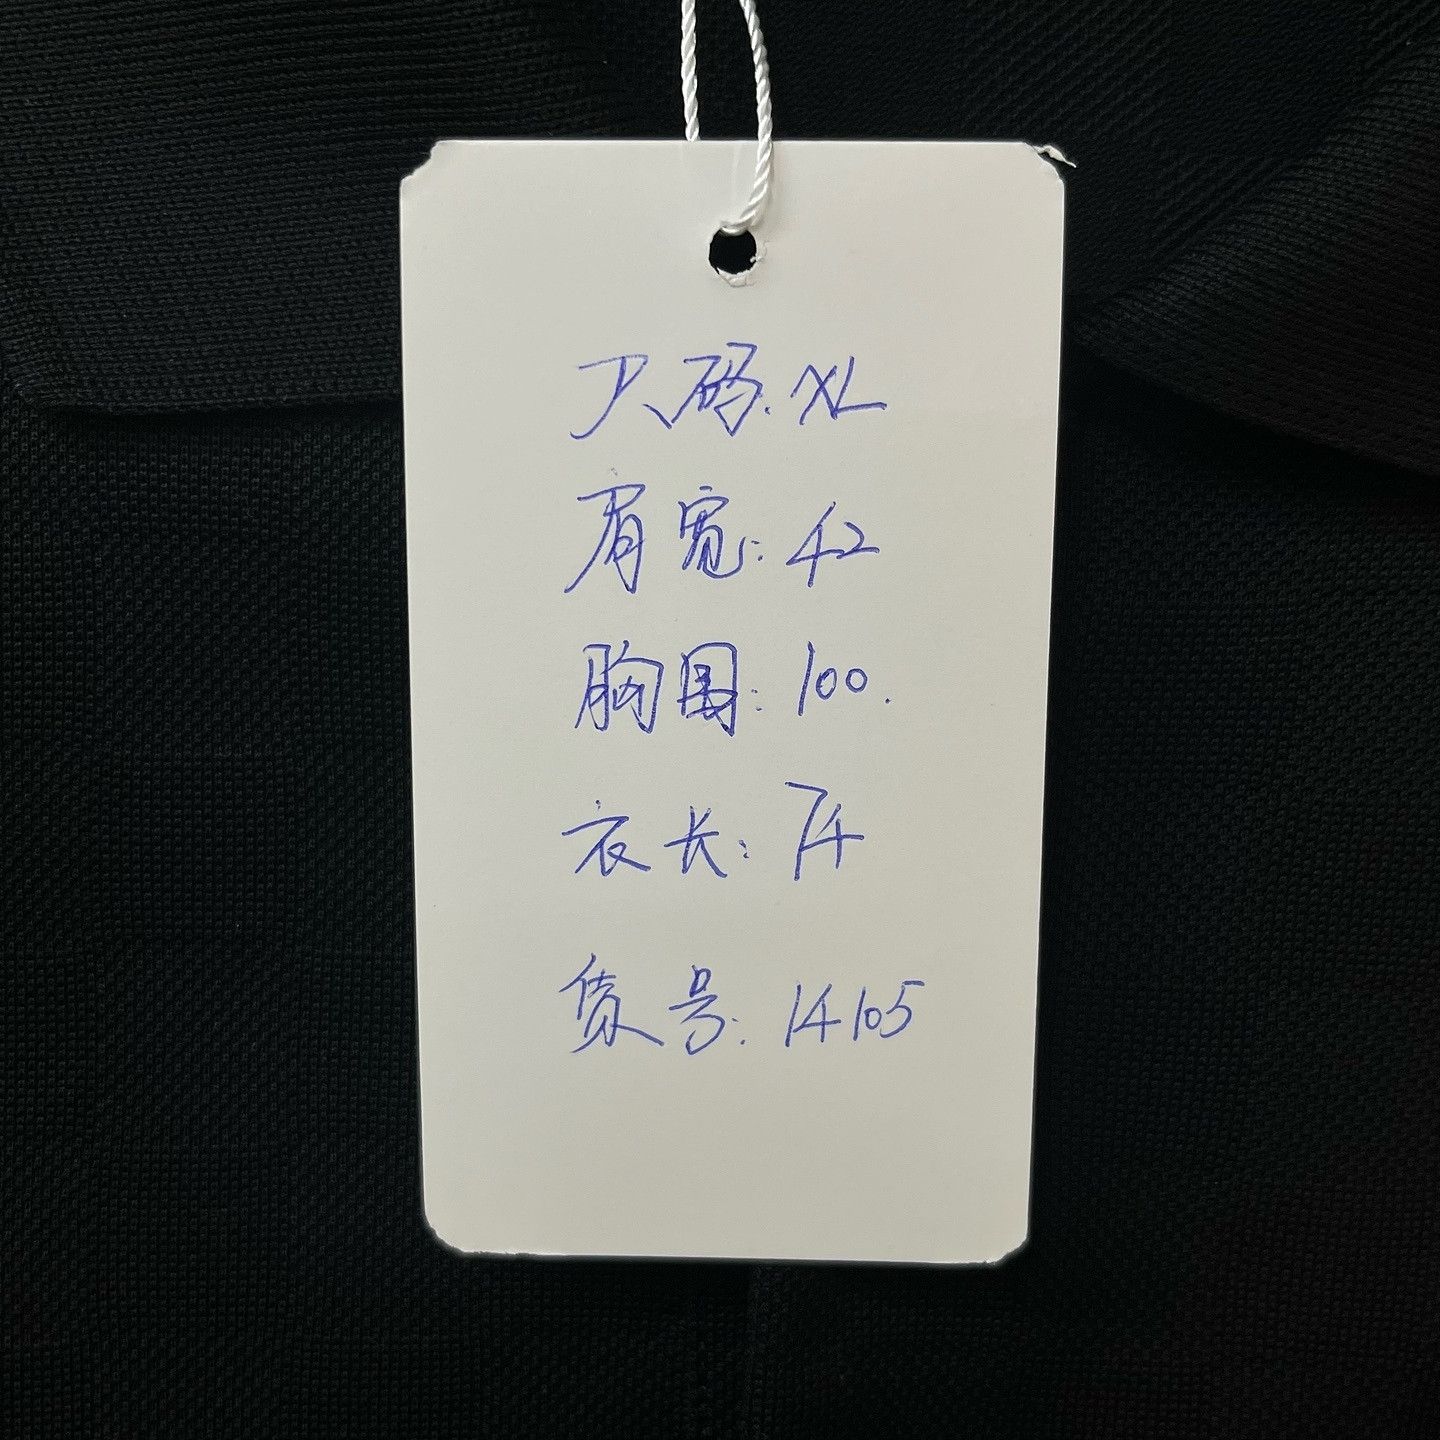 尺码: XL
肩宽: 42
胸围: 100.
衣长: 74
货号: 14105